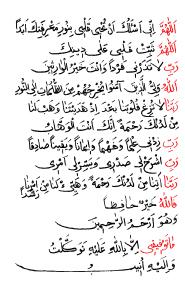 اللهم اني اسئلك ان تحيي قلبي بنور معرفتك ابدا
اللهم ثبت قلبي على دينك
رب لا تذرني فردا وانت خير الوارثين
الله ولي الذين آمنوا يخرجهم من الظلمات الى النور
ربنا لا تزغ قلوبنا بعد اذ هديتنا وهب لنا
من لدنك رحمة انك انت الوهاب
رب زدني علما وفهما وايمانا ويقينا صادقا
رب اشرح لي صدري ويسر لي امري
ربنا آتنا من لدنك رحمة وهيئ لنا من امرنا رشدا
فالله خير حافظا
وهو ارحم الراحمين
وما توفيقي الا بالله عليه توكلت
واليه انيب